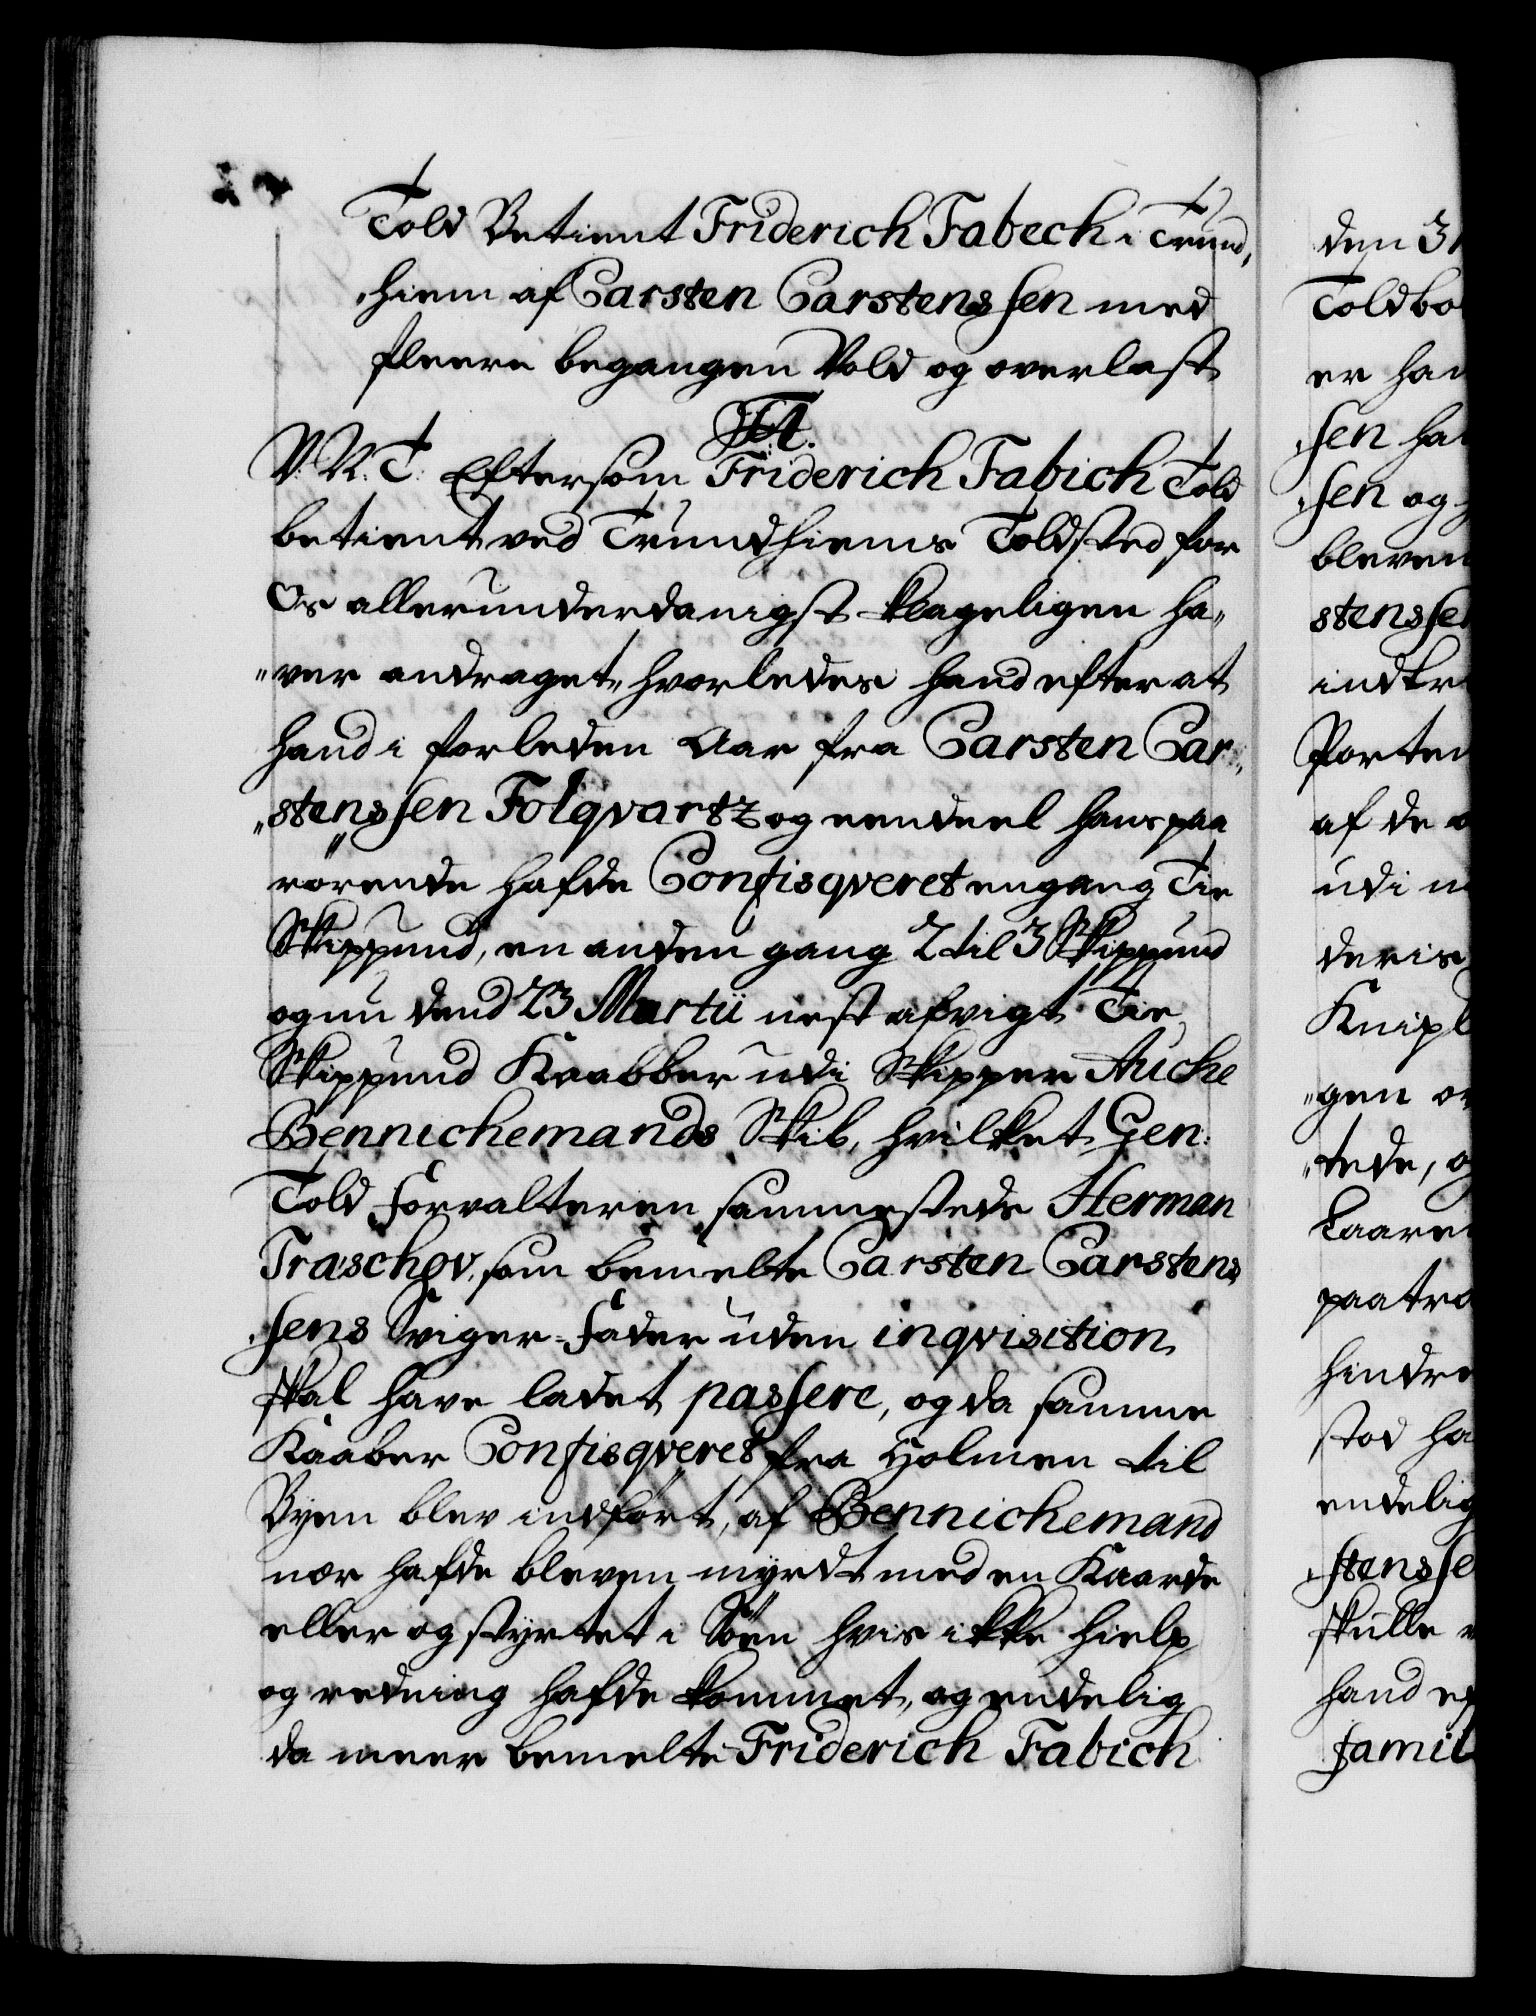 Told Betient Friderich Fabech i Trund,
hiem af Carsten Carstenssen med
fleere begangen Vold og overlast
F4.
V. N. T. Eftersom Friderich Fabich Told
betient ved Trundhiems Toldsted for
Os allerunderdanigst klageligen ha„
„ver andraget, hvorledes hand efter at
hand i forleden Aar fra Carsten Car„
„stenssen Folqvartz og eendeel hans paa
rørende hafde Confisqveret engang Tie
Skippund, en anden gang 2 til 3 Skippund
og nu dend 23 Martii nest afvigt Tie
Skippund Kaabber udi Skipper Aucke
Bennichemands Skib, hvilket Gen:
Told Forvalteren sammesteds Herman
Traschov, som bemelte Carsten Carstens
sens Sviger-Fader uden inqvisition
skal have ladet passere, og da samme
Kaaber Confisqveret fra Holmen til
Byen blev indført, af Bennichemand
nær hafde bleven myrdt med en Kaarde
eller og styrtet i Søen hvis ikke hielp
og redning hafde kommet, og endelig
da meer bemelte Friderich Fabich
den 31
Toldbo
er han
sen ha
sen og
bleven
stensse
indkr
Porten
af de
udi
deris
Knipl
„gen
„tede, og
Kaare
paatra
hindre
stod ha
endelig
stensse
skulle
hand ef
famil